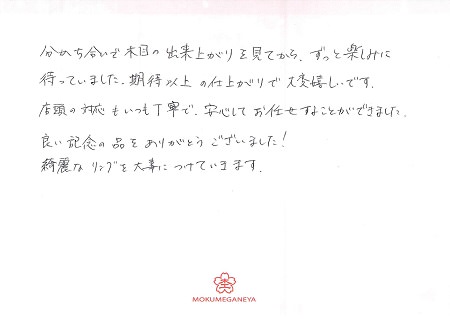 分かち合いで木目の出来上がりを見てから、ずっと楽しみに
待っていました。期待以上の仕上がりで大変嬉しいです。
店頭の対応もいつも丁寧で、安心してお任せすることができました。
良い記念の品をありがとうございました!
綺麗なリングを大事につけていきます。
MOKUMEGANEYA